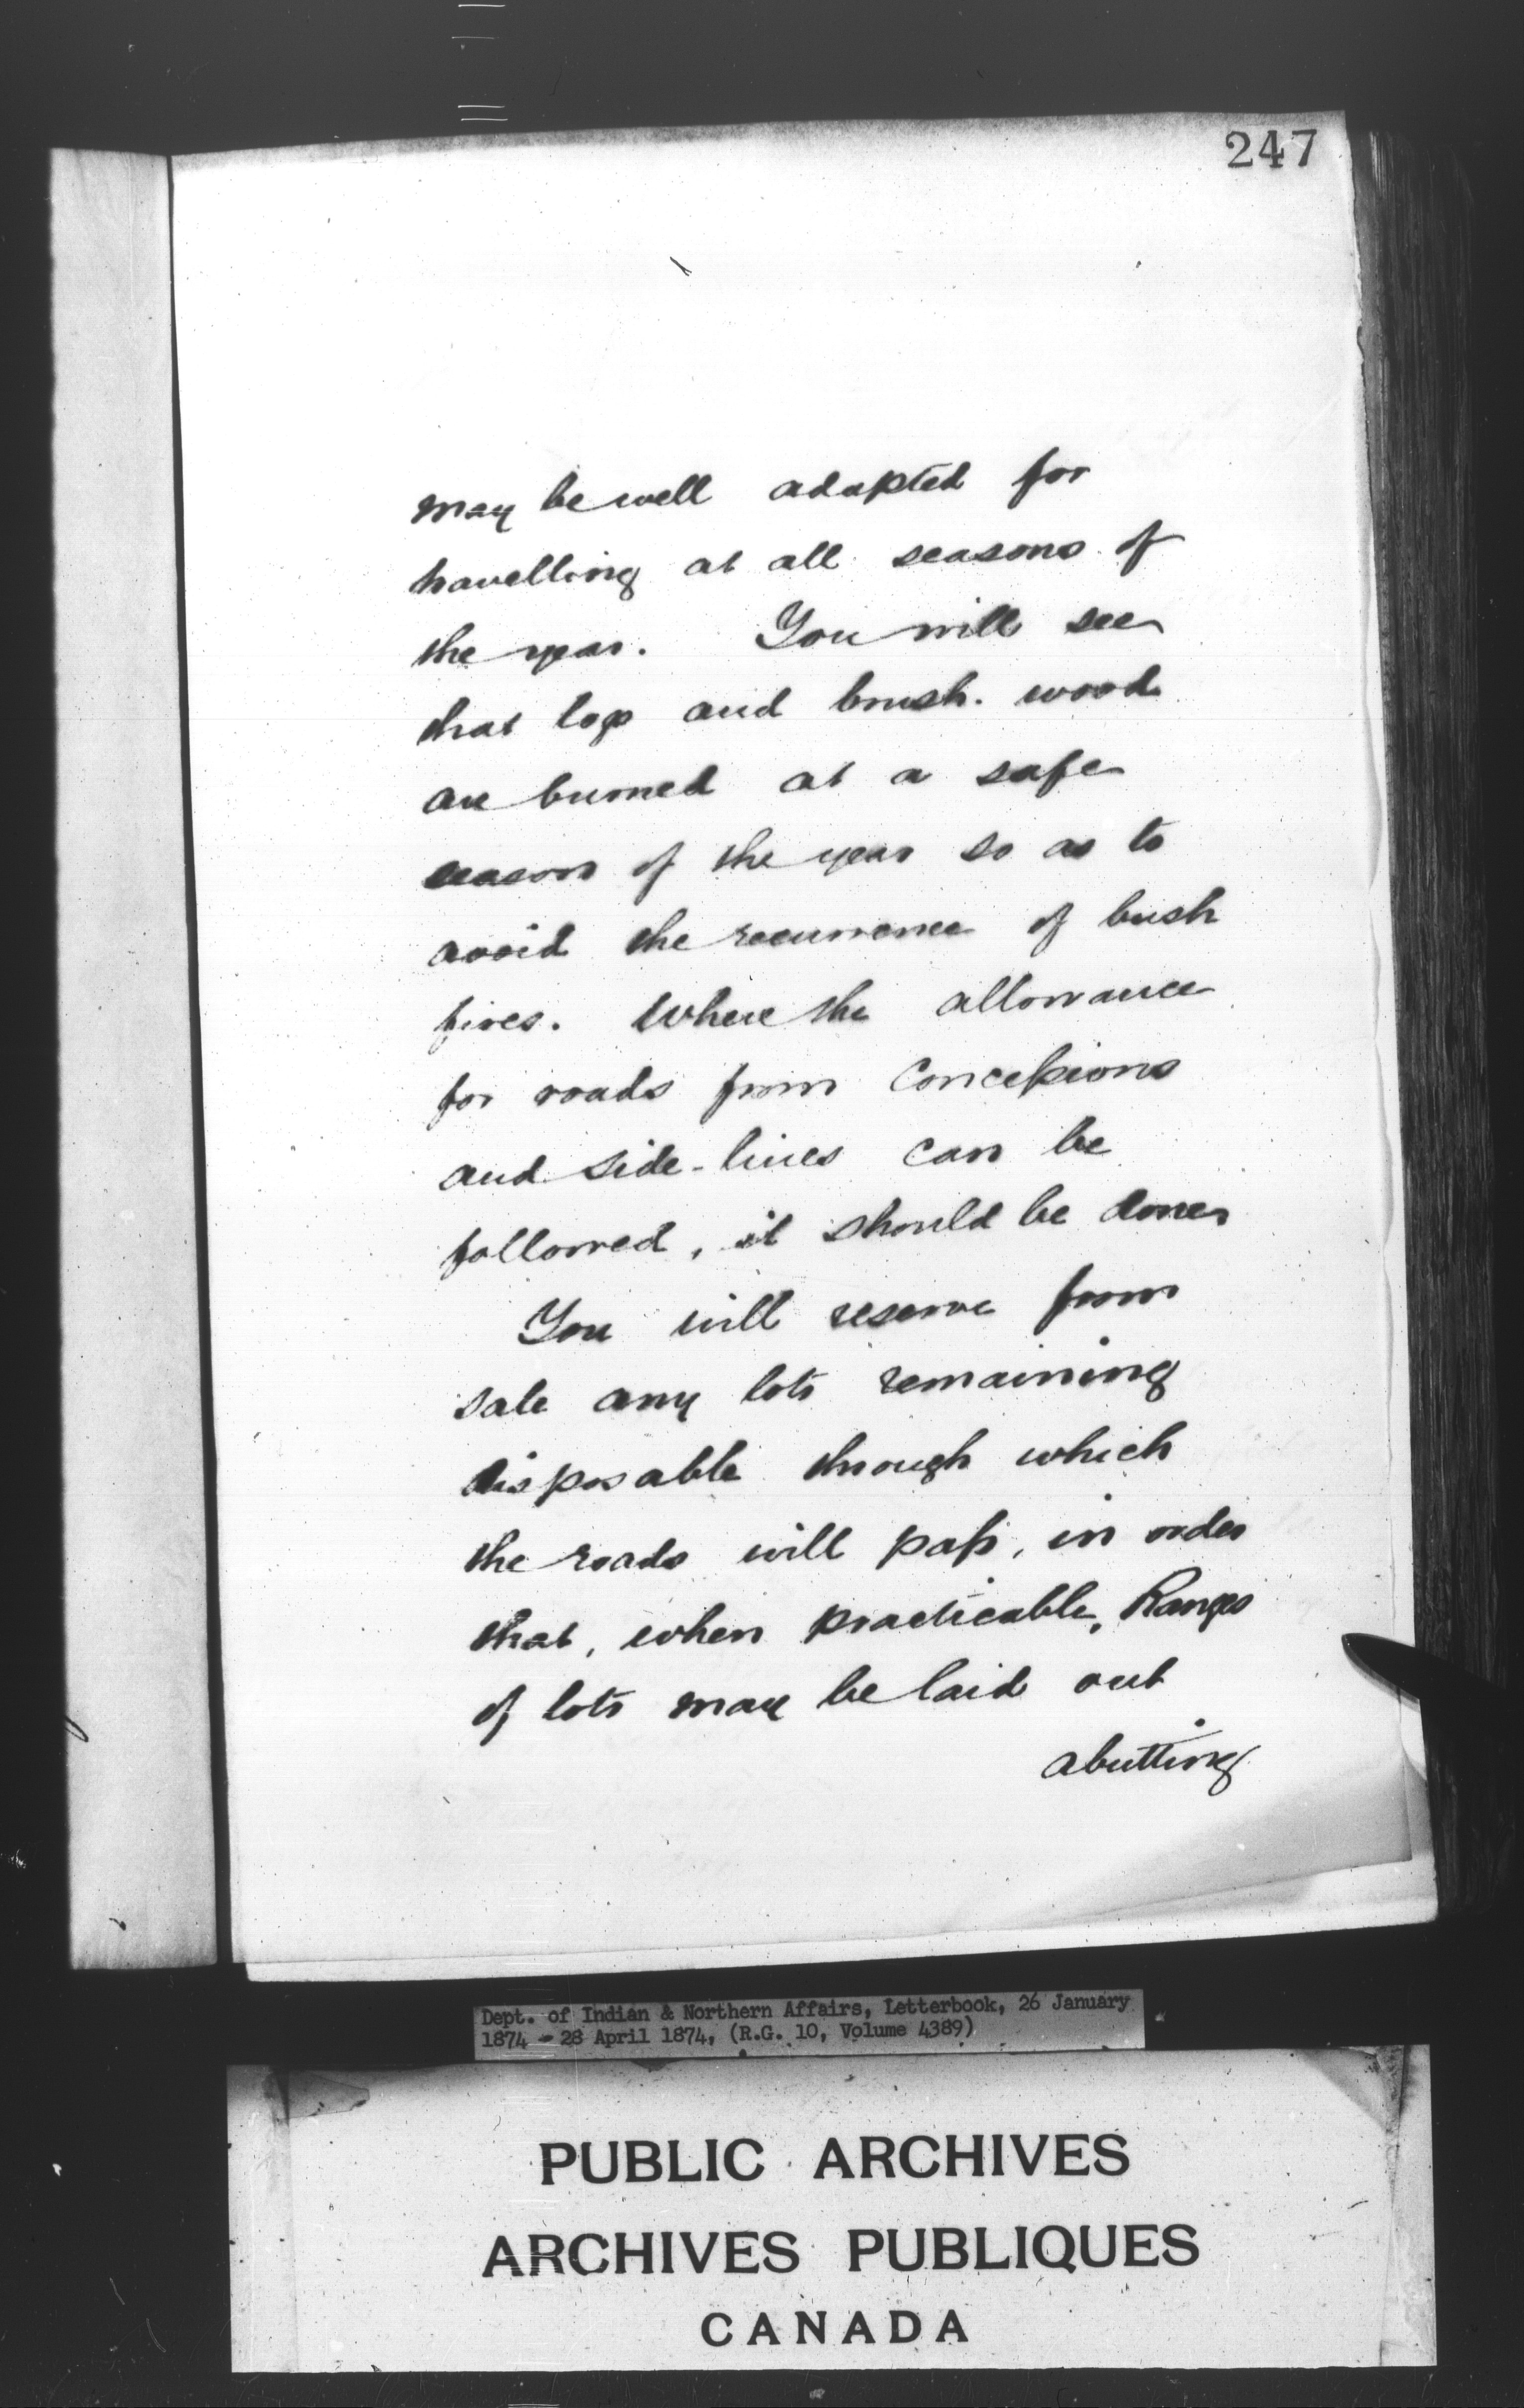 247
may be well adapted for
travelling at all seasons of
the year. You will see
that logs and brush-wood
are burned at a safe
season of the year so as to
avoid the recurrence of bush
fires. Where the allowance
for roads from Concessions
and side-lines can be
followed, it should be done.
You will reserve from
sale any lots remaining
disposable through which
the roads will pass, in order
that, when practicable, Ranges
of lots may be laid out
abutting
Dept. of Indian & Northern Affairs, Letterbook, 26 January
1874 - 28 April 1874, (R.G. 10, Volume 4389)
PUBLIC ARCHIVES
ARCHIVES PUBLIQUES
CANADA